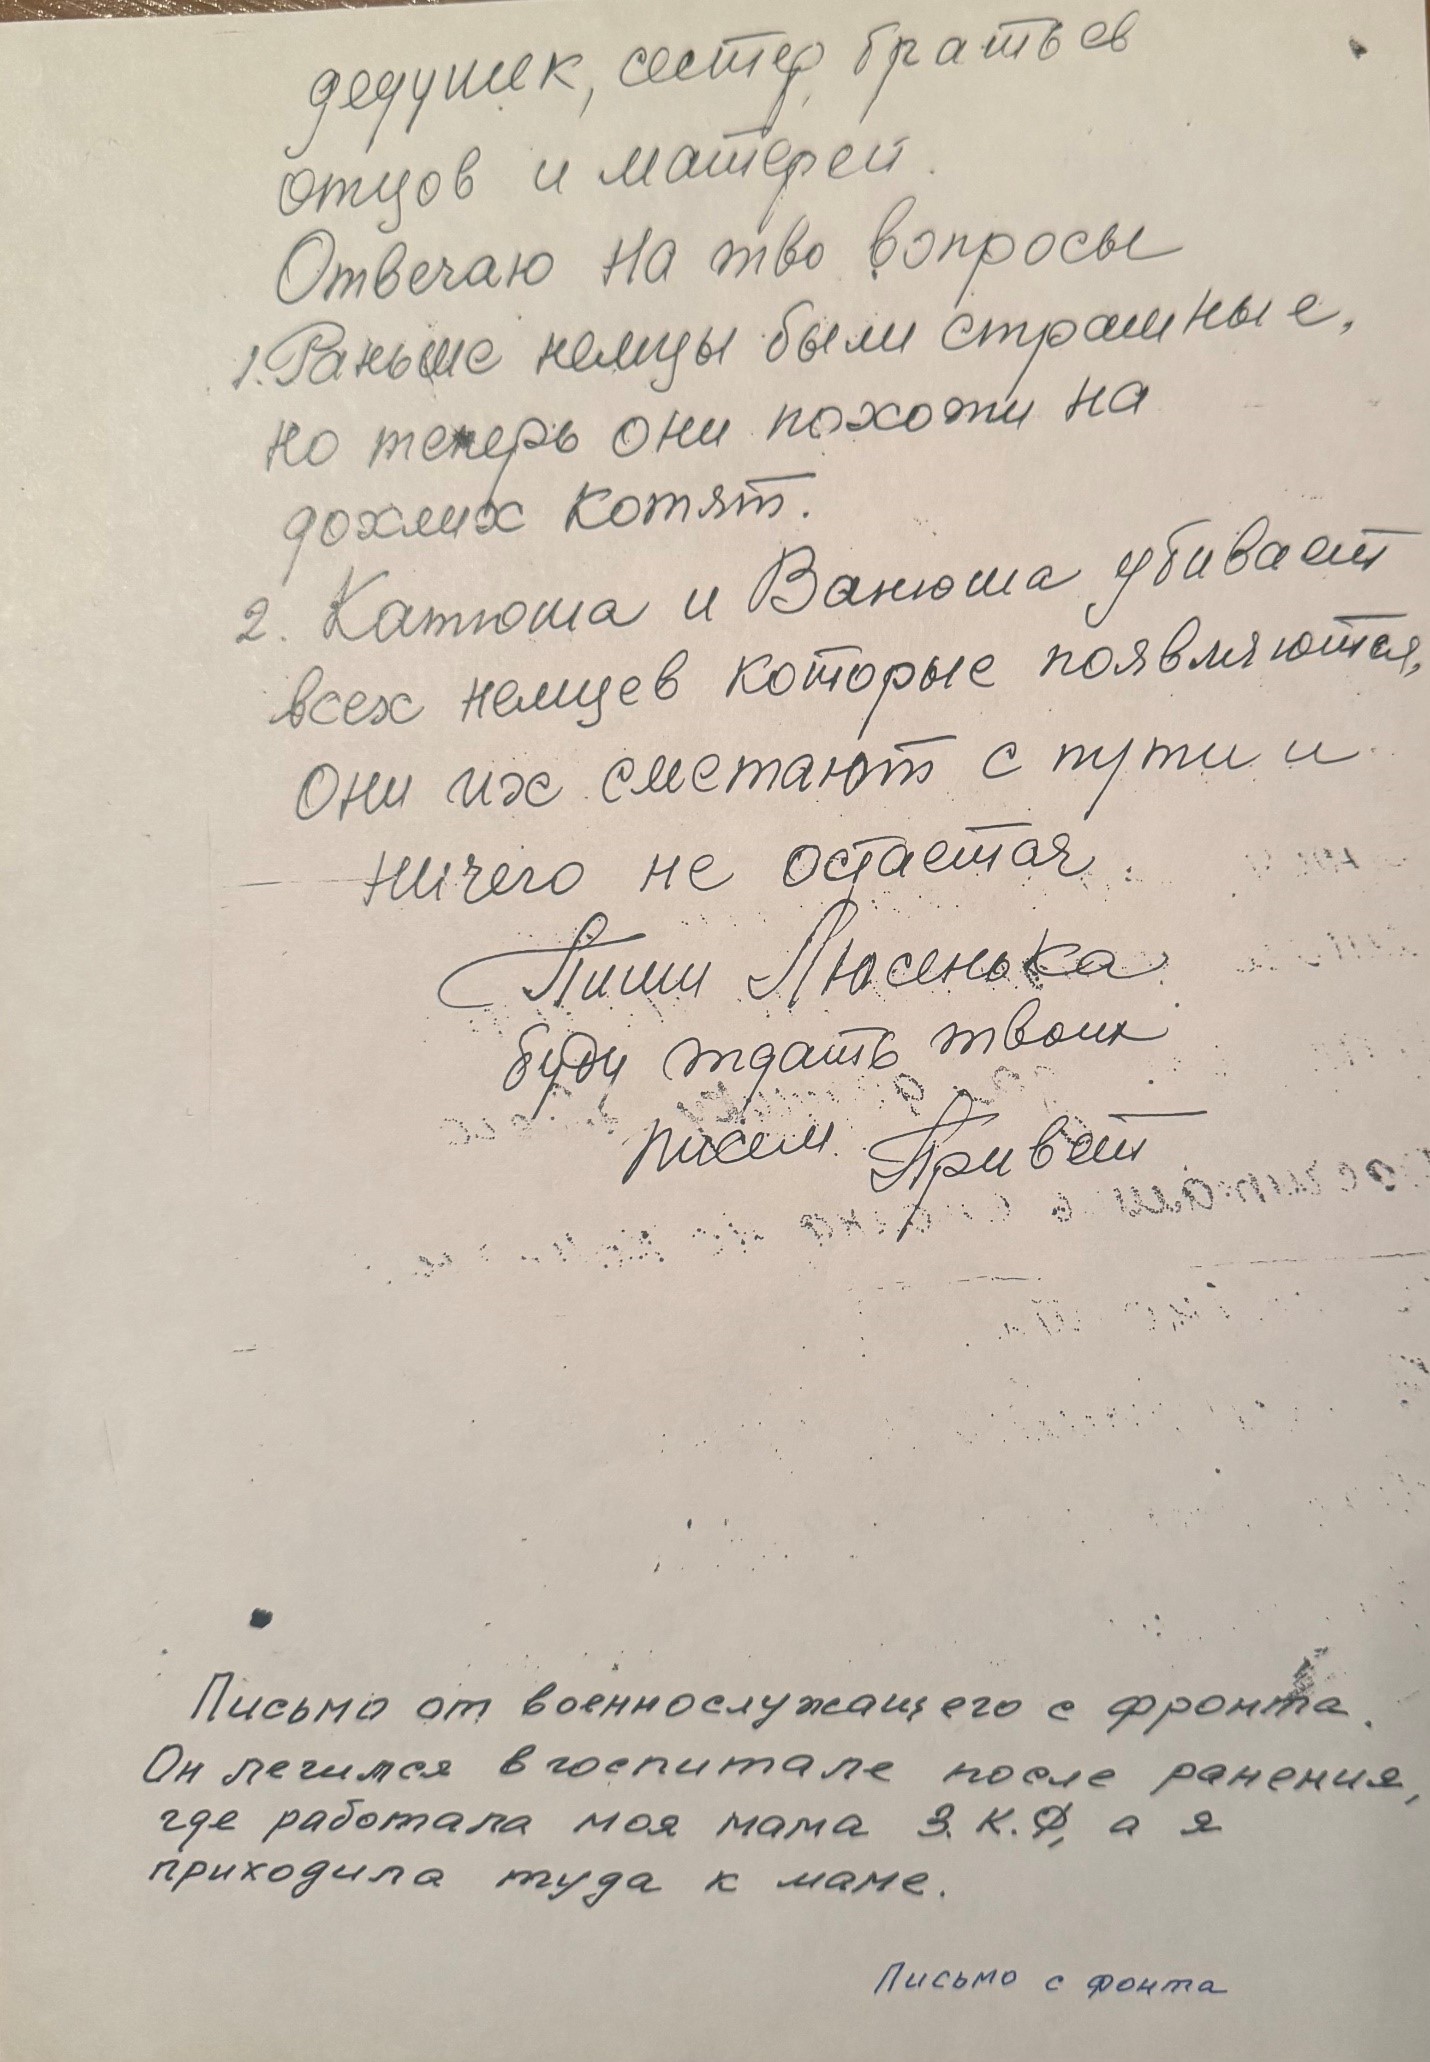 дедушек, сестер, братьев
отцов и матерей.
Отвечаю на тво вопросы
1. Раньше немцы были страшные,
но теперь они похожи на
дохлих котят.
2. Катюша и Ванюша убивает
всех немцев которые появляются,
они их сметают с пути и
ничего не остается.
Пиши Люсенька
буду ждать твоих
писем. Привет
Письмо от военнослужащего с фронта.
Он лечился в госпитале после ранения,
где работала моя мама З.К.Ф, а я
приходила туда к маме.
Письмо с фонта